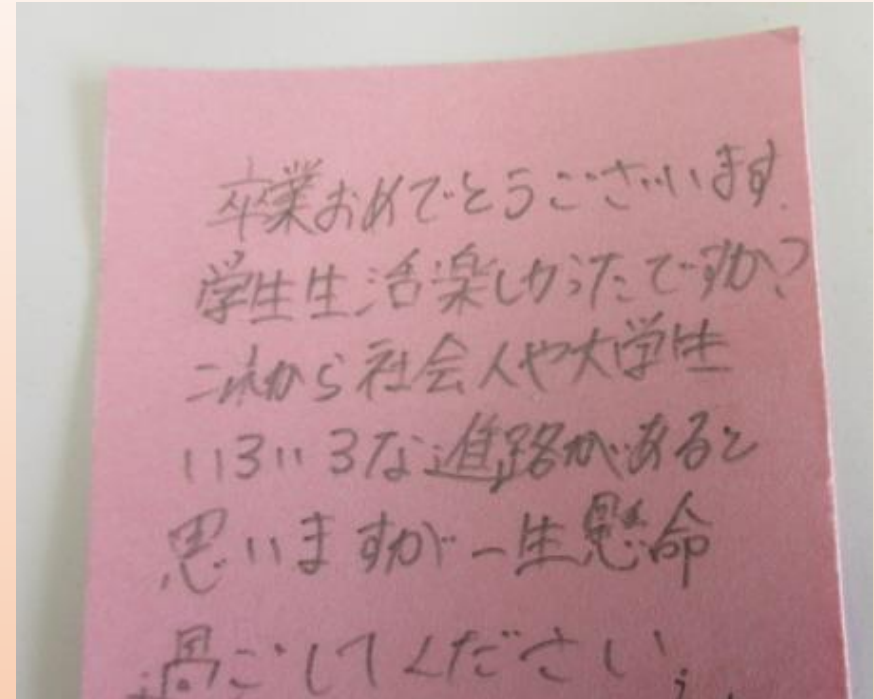 卒業おめでとうございます.
学生生活楽しかったですか?
これから社会人や大学生
いろいろな進路があると
思いますが一生懸命
過ごしてください